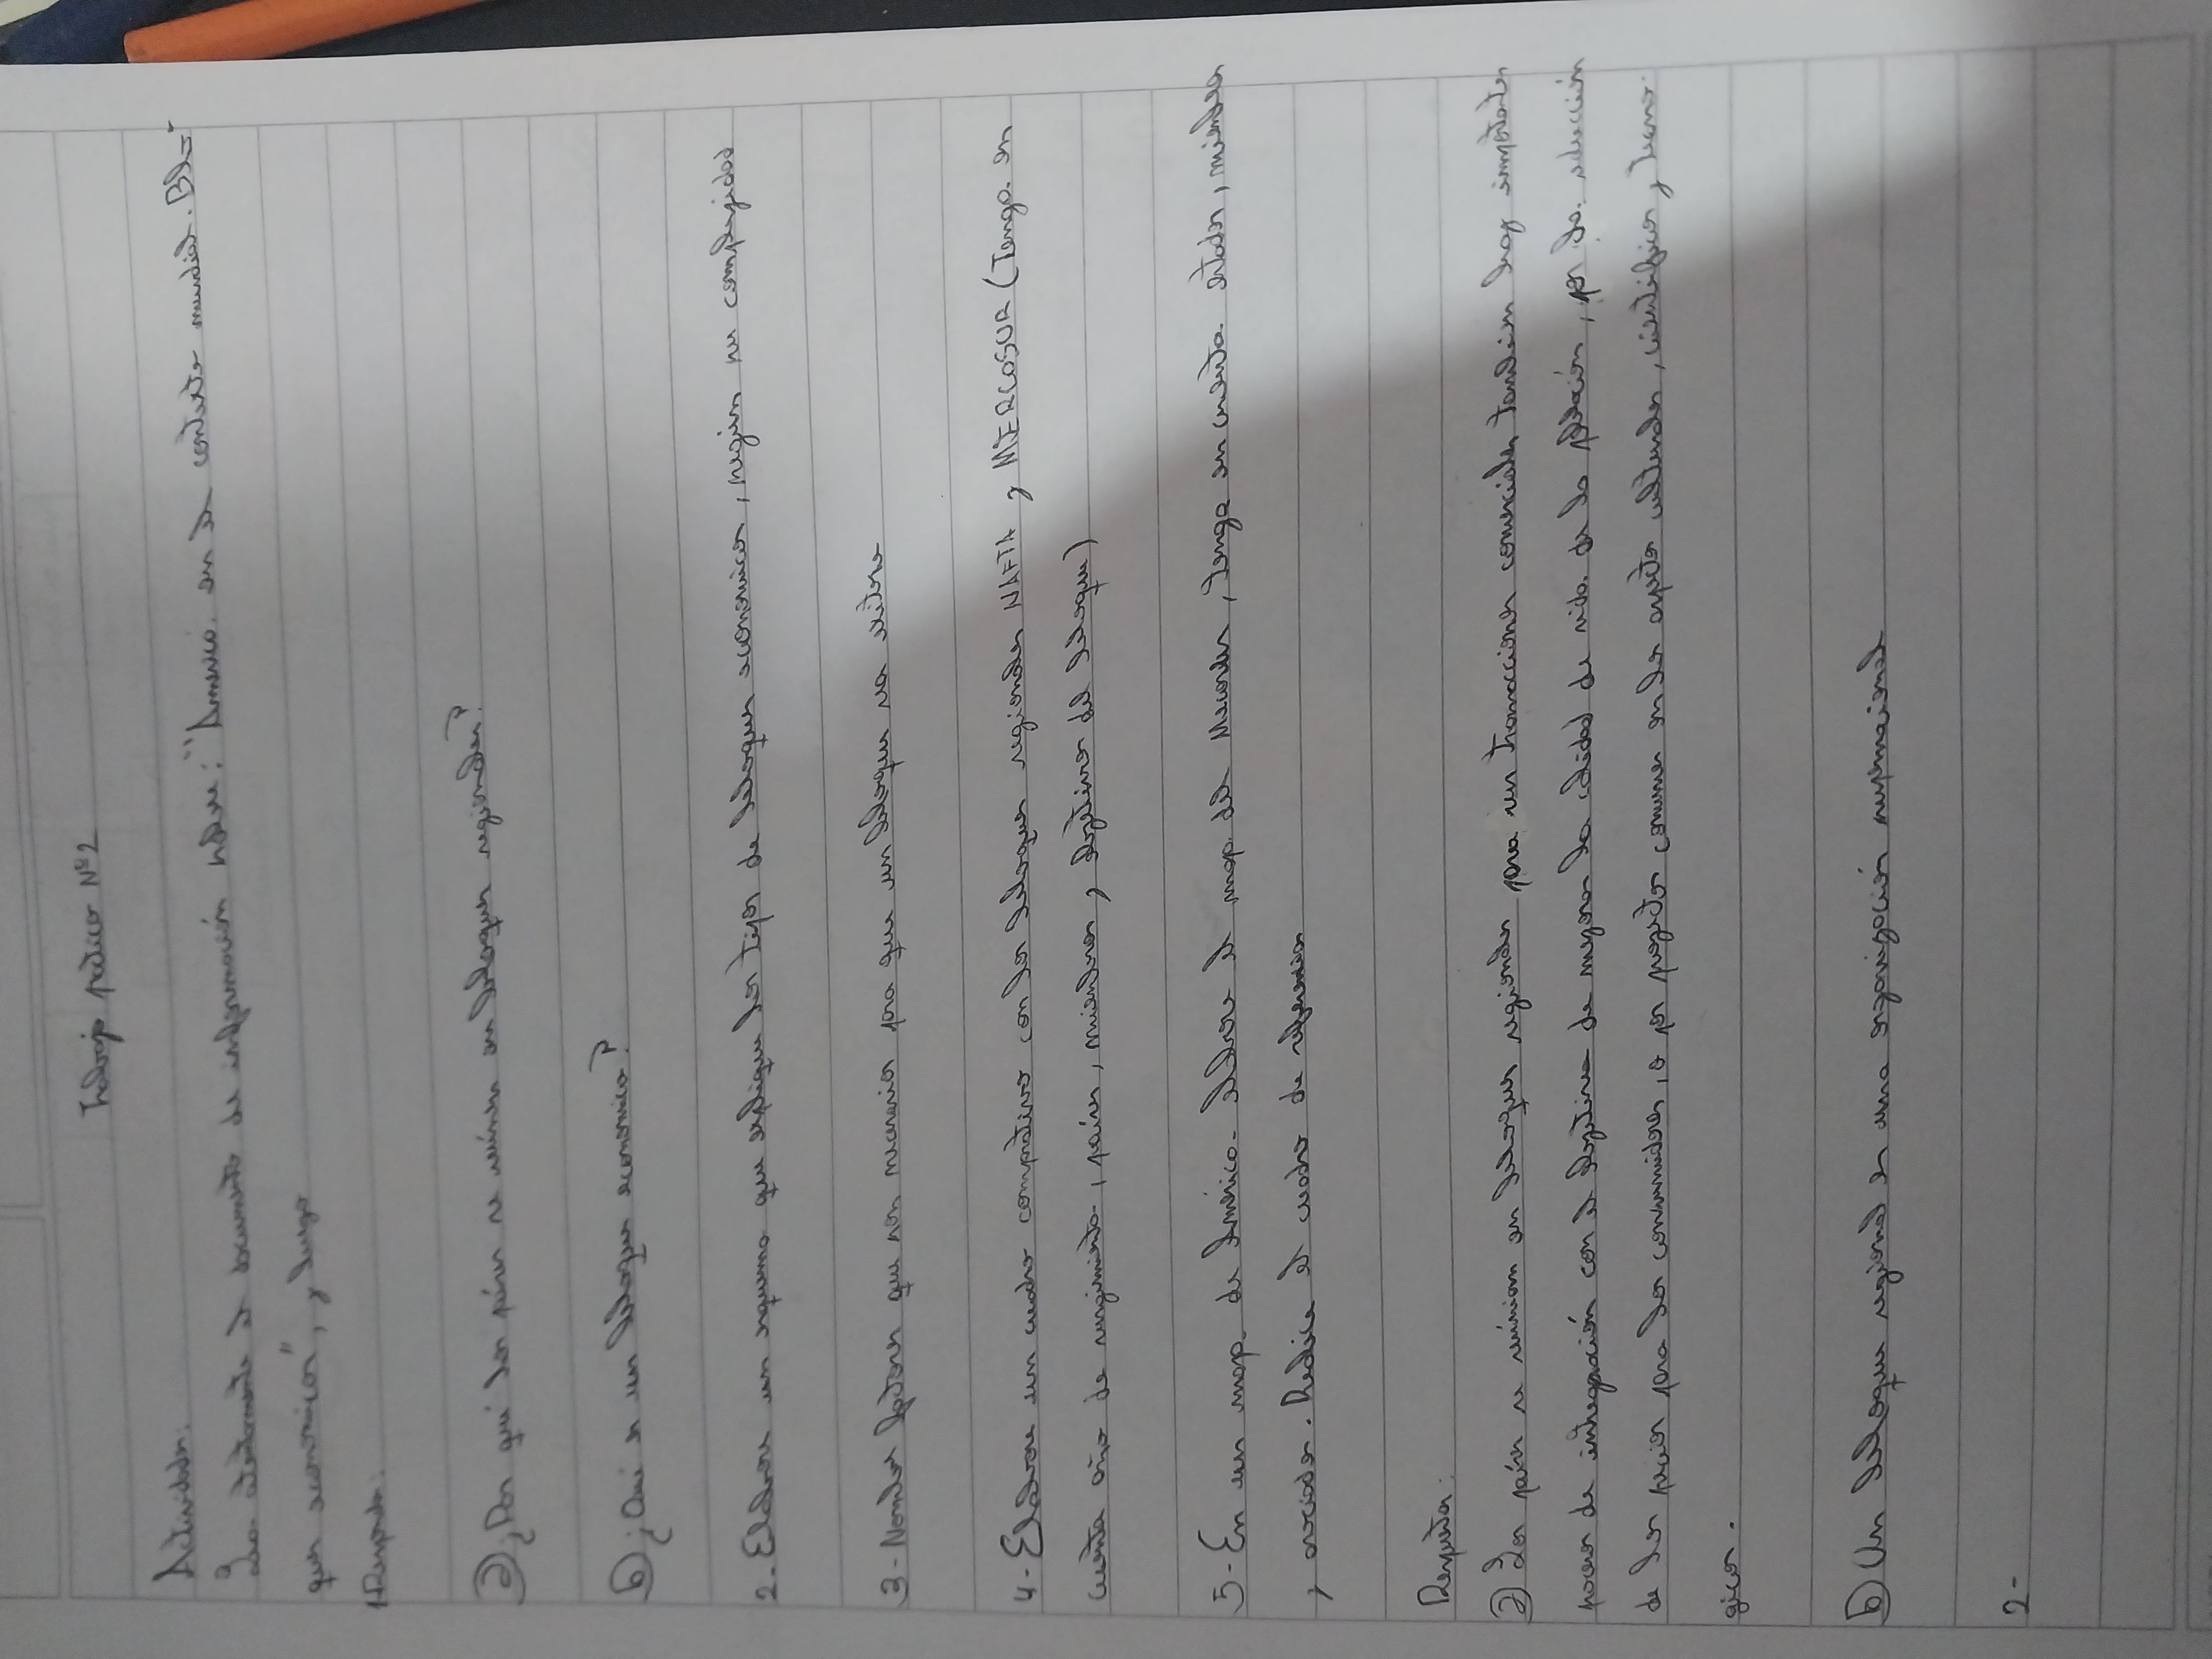 Trabajo práctico Nº2
Actividades:
Lea atentamente el documento de información sobre: "America en el contexto mundial. Blo-
ques económicos", y luego
1-Responda:
a) ¿Por qué los países se reúnen en bloques regionales?
b) ¿Qué es un bloque económico?
2-Elabore un esquema que explique los tipos de bloques económicos, según su complejidad
3-Nombre factores que son necesarios para que un bloque sea exitoso
4-Elabore un cuadro comparativo con los bloques regionales NAFTA y MERCOSUR (Tenga en
cuenta año de surgimiento, países, miembros, y objetivos del bloque)
5-En un mapa de América elabore el mapa del Mercosur, tenga en cuenta estados, miembros
y asociados. Realice el cuadro de referencias
Respuestas:
a) Los países se reúnen en bloques regionales para sus transacciones comerciales, también hay importantes
procesos de integración con el objetivo de mejorar la calidad de vida de la población, por la reducción
de los precios para los consumidores, o por proyectos comunes en los aspectos culturales, científicos y tecnoló-
gicos.
b) Un bloque regional es una organización supranacional
2-